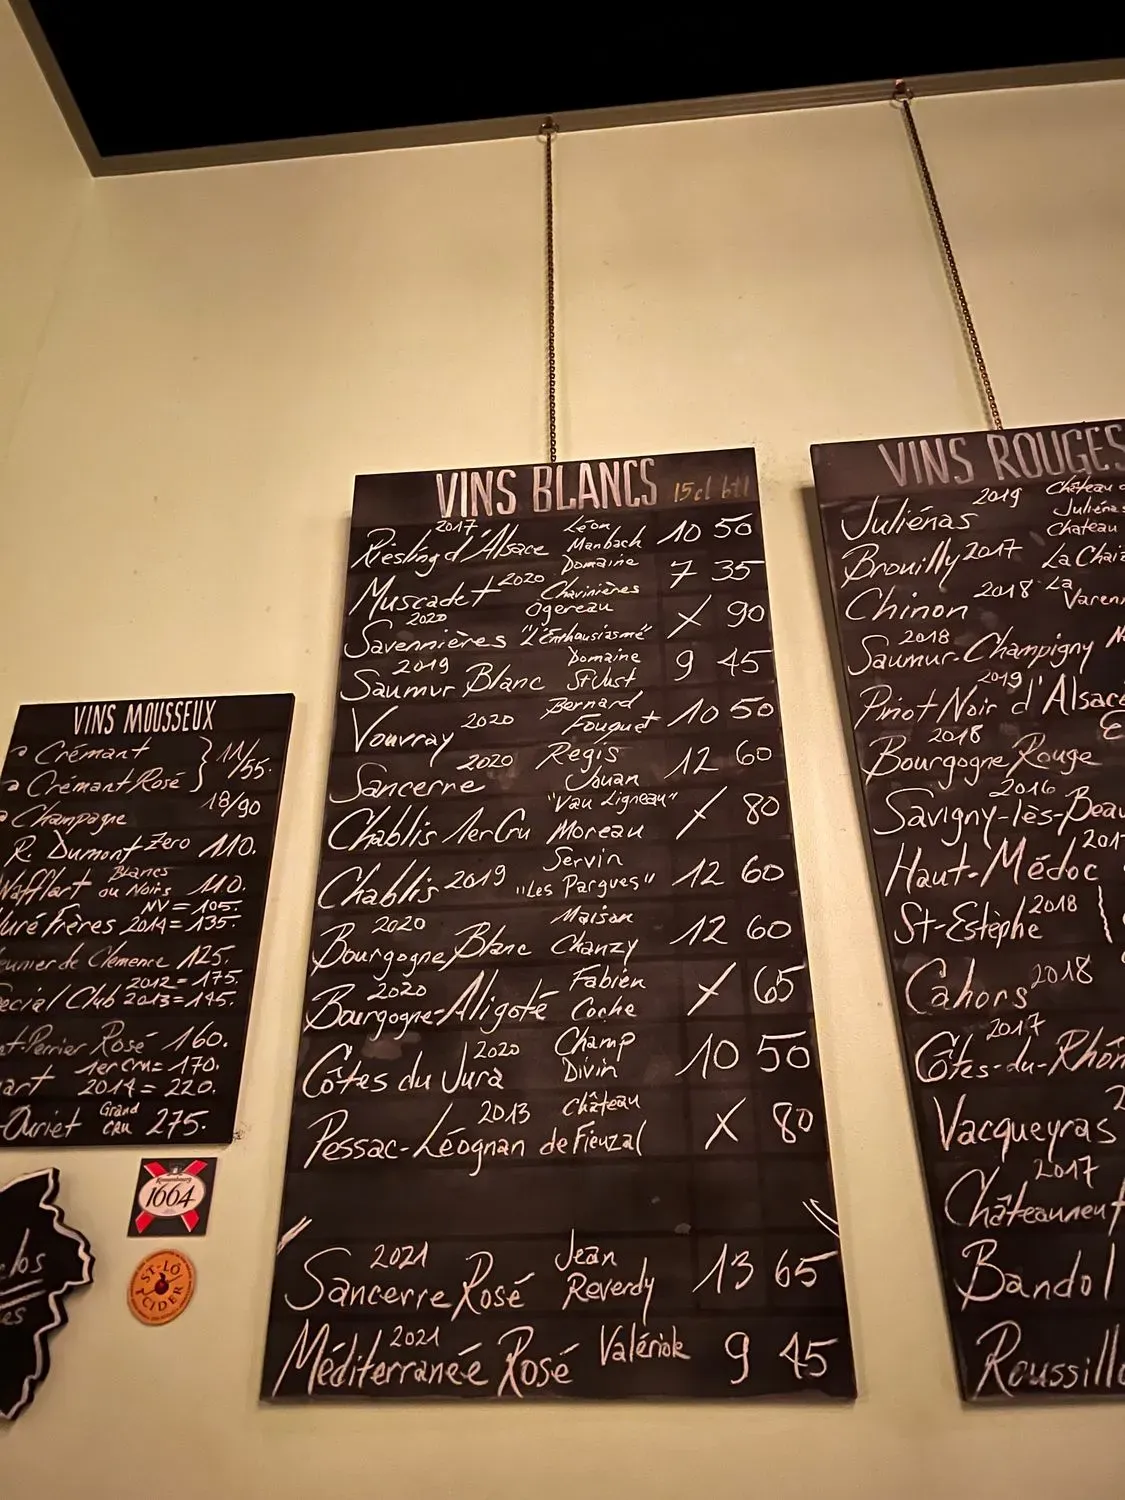 VINS MOUSSEUX
Crémant
Crémant Rosé } 11/55.
Champagne 18/90
R. Dumont Zero 110.
Blancs
ou Noirs 110.
NV = 105.
Frères 2014 = 135.
de Clemence 125.
2012 = 175.
Special Club 2013 = 145.
Perrier Rosé 160.
1er cru = 170.
2014 = 220.
Ouriet Grand Cru 275.
1664
ST-LÔ
CIDER
VINS BLANCS 15cl btl
2017 Léon
Riesling d'Alsace Manbach 10 50
Domaine
Muscadet 2020 Chavinières 7 35
2020 Ogereau
Savennières "L'Enthousiasmé" X 90
2019 Domaine
Saumur Blanc St Just 9 45
Bernard
Vouvray 2020 Fouquet 10 50
2020 Regis
Sancerre Jouan 12 60
"Vau Ligneau"
Chablis 1er Cru Moreau X 80
Servin
Chablis 2019 "Les Pargues" 12 60
2020 Maison
Bourgogne Blanc Chanzy 12 60
2020 Fabien
Bourgogne-Aligoté Conhe X 65
2020 Champ
Côtes du Jura Divin 10 50
2013 Château
Pessac-Léognan de Fieuzal X 80
2021 Jean
Sancerre Rosé Reverdy 13 65
2021
Méditerranée Rosé Valériole 9 45
VINS ROUGES
2019 Château
Juliénas Juliénas
Chateau
Brouilly 2017 La Chaiz
Chinon 2018 La Varenn
2018
Saumur-Champigny
2019
Pinot Noir d'Alsace
2018
Bourgogne Rouge
2016
Savigny-lès-Beau
Haut-Médoc 201
St-Estèphe 2018
Cahors 2018
2017
Côtes-du-Rhôn
Vacqueyras
2017
Châteauneuf
Bandol
Roussillo